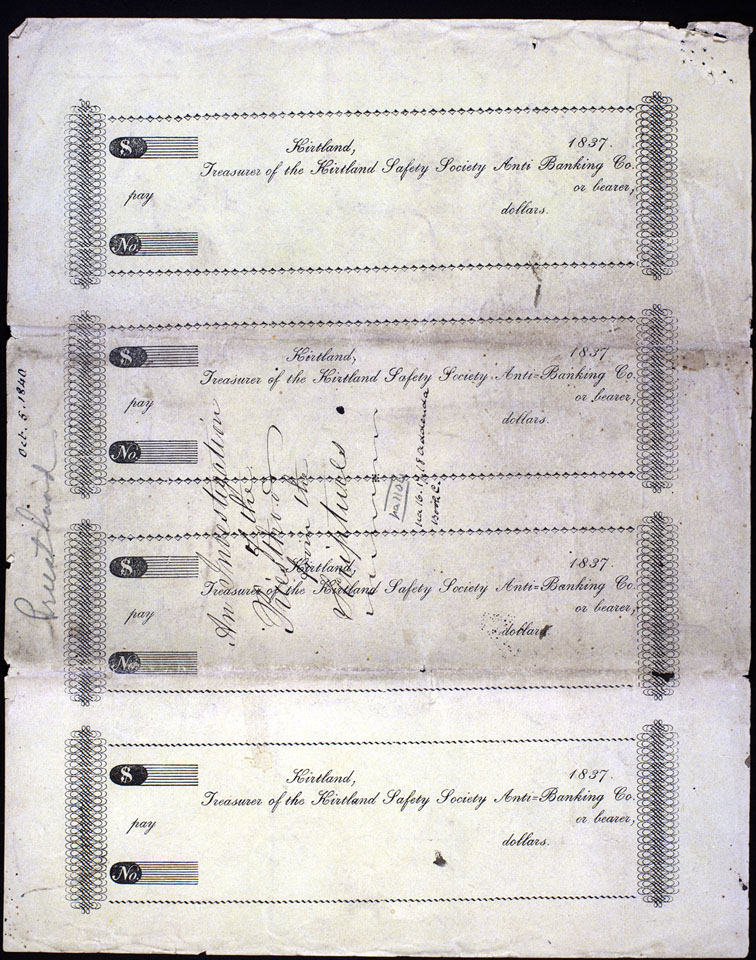 $
Kirtland, 1837.
Treasurer of the Kirtland Safety Society Anti Banking Co.
pay or bearer,
dollars.
No.
$
Kirtland, 1837.
Treasurer of the Kirtland Safety Society Anti=Banking Co.
pay or bearer,
dollars.
No.
$
Kirtland, 1837.
Treasurer of the Kirtland Safety Society Anti=Banking Co.
pay or bearer,
dollars.
No.
$
Kirtland, 1837.
Treasurer of the Kirtland Safety Society Anti=Banking Co.
pay or bearer,
dollars.
No.
Oct. 5. 1840
Priesthood
An Investigation
of the
Priesthood
from the
Scriptures
addenda
Book C.